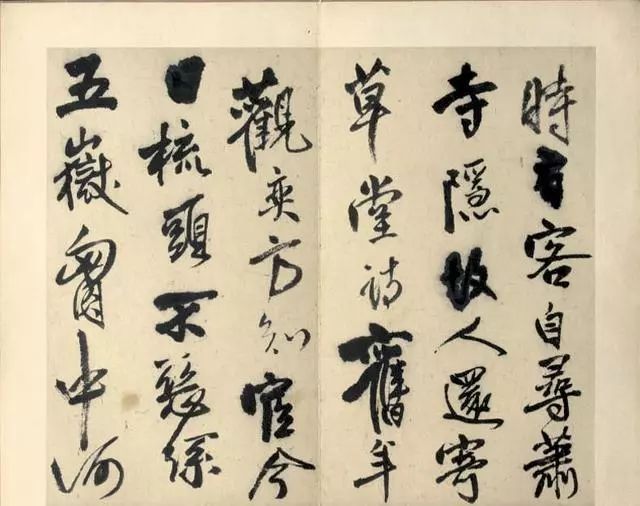 時有客自尋蕭
寺隱故人還寄
草堂詩舊年
觀奕方知宦今
日梳頭不
五嶽胷中河